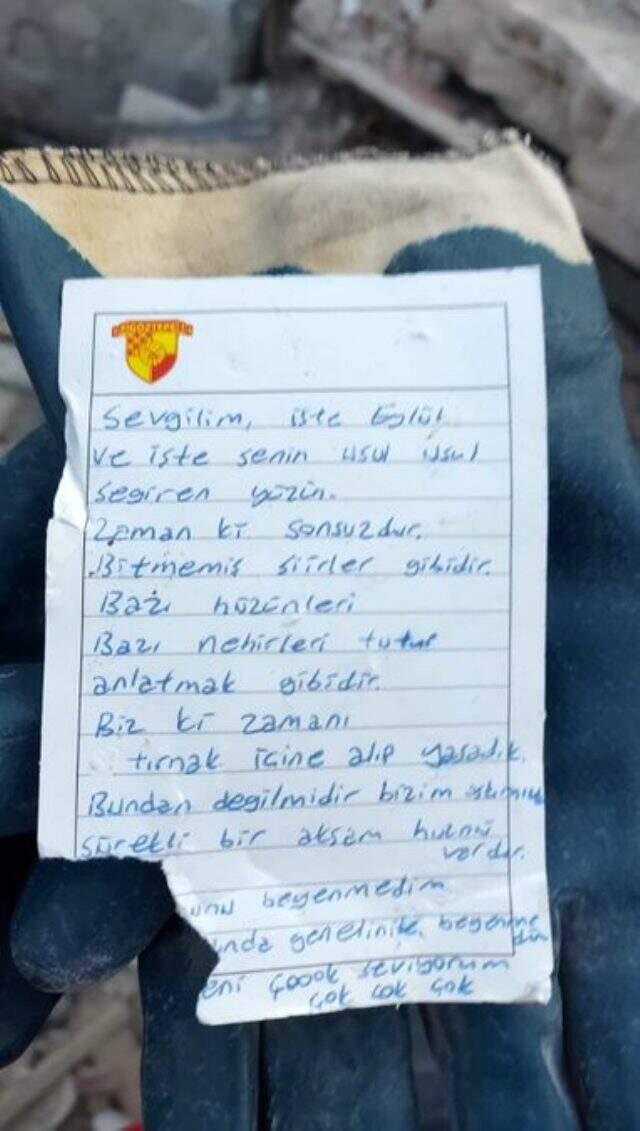 GÖZTEPE
Sevgilim, işte Eylül
ve işte senin usul usul
segiren yüzün.
Zaman ki sonsuzdur.
Bitmemiş şiirler gibidir.
Bazı hüzünleri
Bazı nehirleri tutup
anlatmak gibidir.
Biz ki zamanı
tırnak içine alıp yaşadık.
Bundan degilmidir bizim aşkımız
sürekli bir akşam hüznü
vardır.
unu beyenmedim
ında genelinikle beyenme
dim
eni çoook seviyorum
çok çok çok